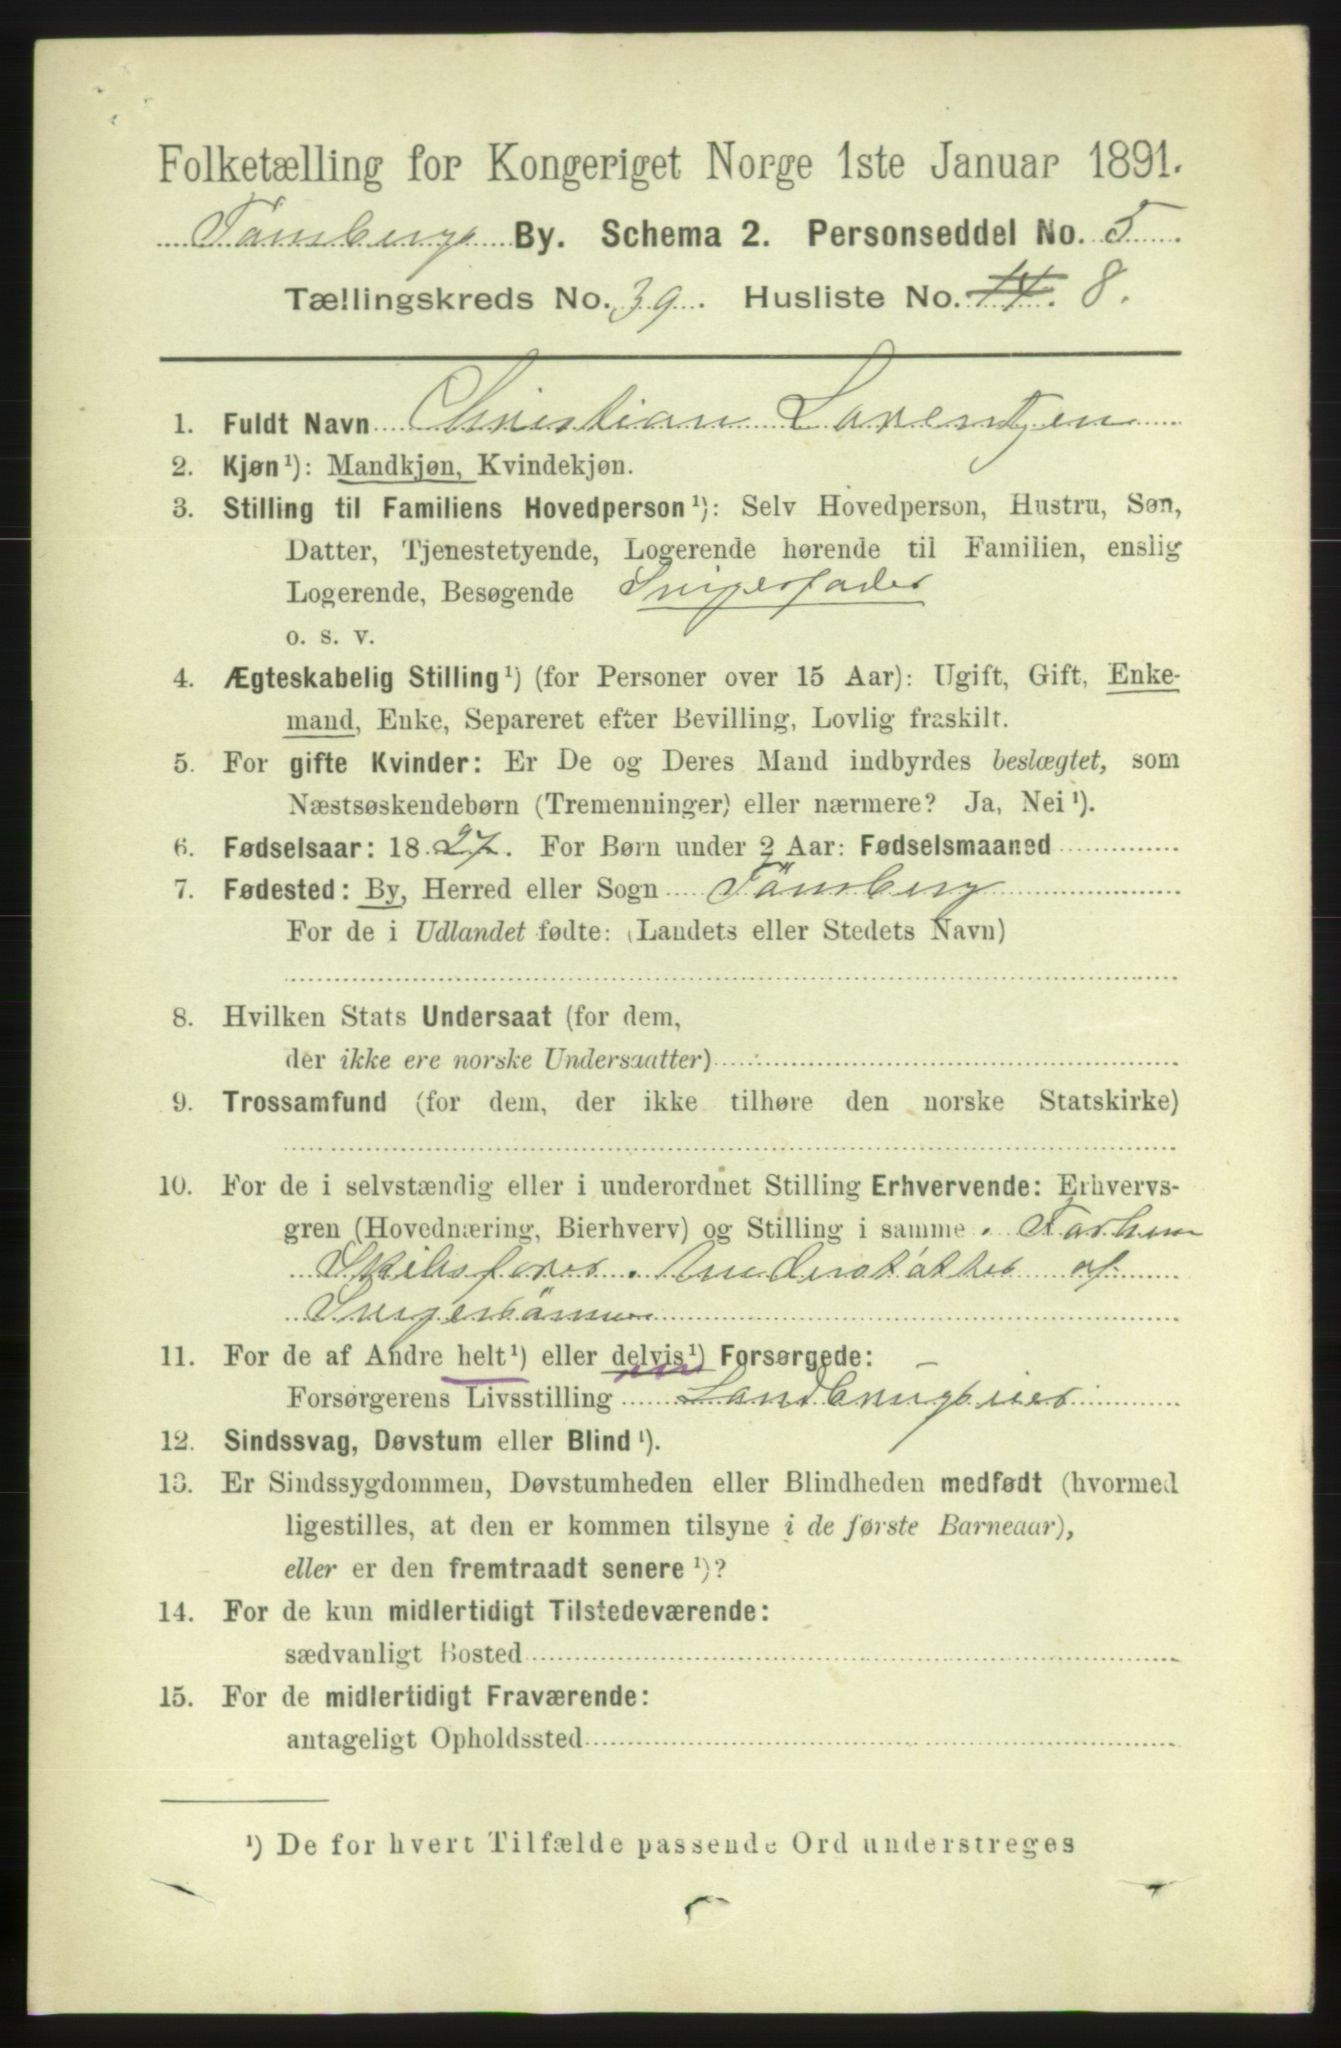 Folketælling for Kongeriget Norge 1ste Januar 1891.
Tönsbergs By. Schema 2. Personseddel No. 5
Tællingskreds No. 39. Husliste No. 14. 8.
1. Fuldt Navn Christian Lorentzen
2. Kjøn¹): Mandkjøn, Kvindekjøn.
3. Stilling til Familiens Hovedperson¹): Selv Hovedperson, Hustru, Søn,
Datter, Tjenestetyende, Logerende hørende til Familien, enslig
Logerende, Besøgende Svigerfader
o. s. v.
4. Ægteskabelig Stilling¹) (for Personer over 15 Aar): Ugift, Gift, Enke-
mand, Enke, Separeret efter Bevilling, Lovlig fraskilt.
5. For gifte Kvinder: Er De og Deres Mand indbyrdes beslægtet, som
Næstsøskendebørn (Tremenninger) eller nærmere? Ja, Nei¹).
6. Fødselsaar: 1827. For Børn under 2 Aar: Fødselsmaaned
7. Fødested: By, Herred eller Sogn Tönsberg
For de i Udlandet fødte: (Landets eller Stedets Navn)
8. Hvilken Stats Undersaat (for dem,
der ikke ere norske Undersaatter)
9. Trossamfund (for dem, der ikke tilhøre den norske Statskirke)
10. For de i selvstændig eller i underordnet Stilling Erhvervende: Erhvervs-
gren (Hovednæring, Bierhverv) og Stilling i samme. Forhen
Skibsfører. Understöttes af
Svigersönnen
11. For de af Andre helt¹) eller delvis¹) Forsørgede:
Forsørgerens Livsstilling Landbrugeier
12. Sindssvag, Døvstum eller Blind¹).
13. Er Sindssygdommen, Døvstumheden eller Blindheden medfødt (hvormed
ligestilles, at den er kommen tilsyne i de første Barneaar),
eller er den fremtraadt senere¹)?
14. For de kun midlertidigt Tilstedeværende:
sædvanligt Bosted
15. For de midlertidigt Fraværende:
antageligt Opholdssted
¹) De for hvert Tilfælde passende Ord understreges